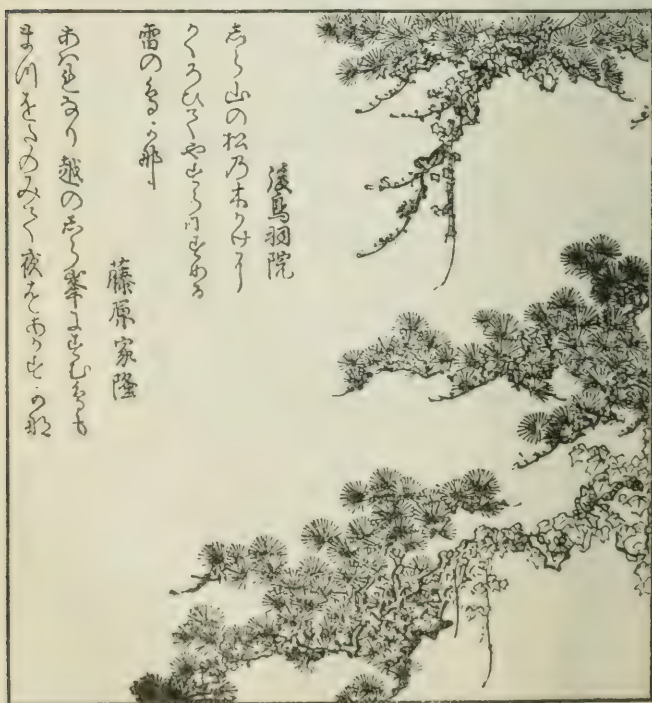 後鳥羽院
志ら山の松乃木かけに
かくろひてやすらにすめる
雷の鳥か那
藤原家隆
あはれなり越の志ら峯にすむ鳥も
まつをたのみて夜をあかすか那